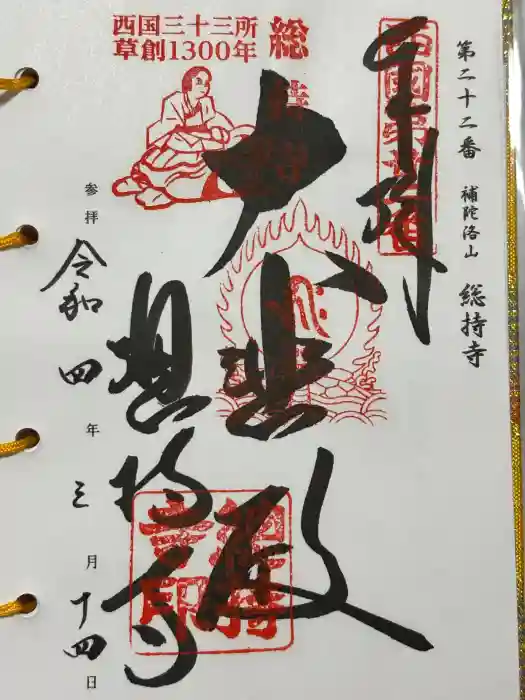 第二十二番 補陀洛山 総持寺
奉拝
西國第廿二番
大悲殿
総持寺
西国三十三所
草創1300年
総持寺
総持寺印
参拝 令和四年三月十四日